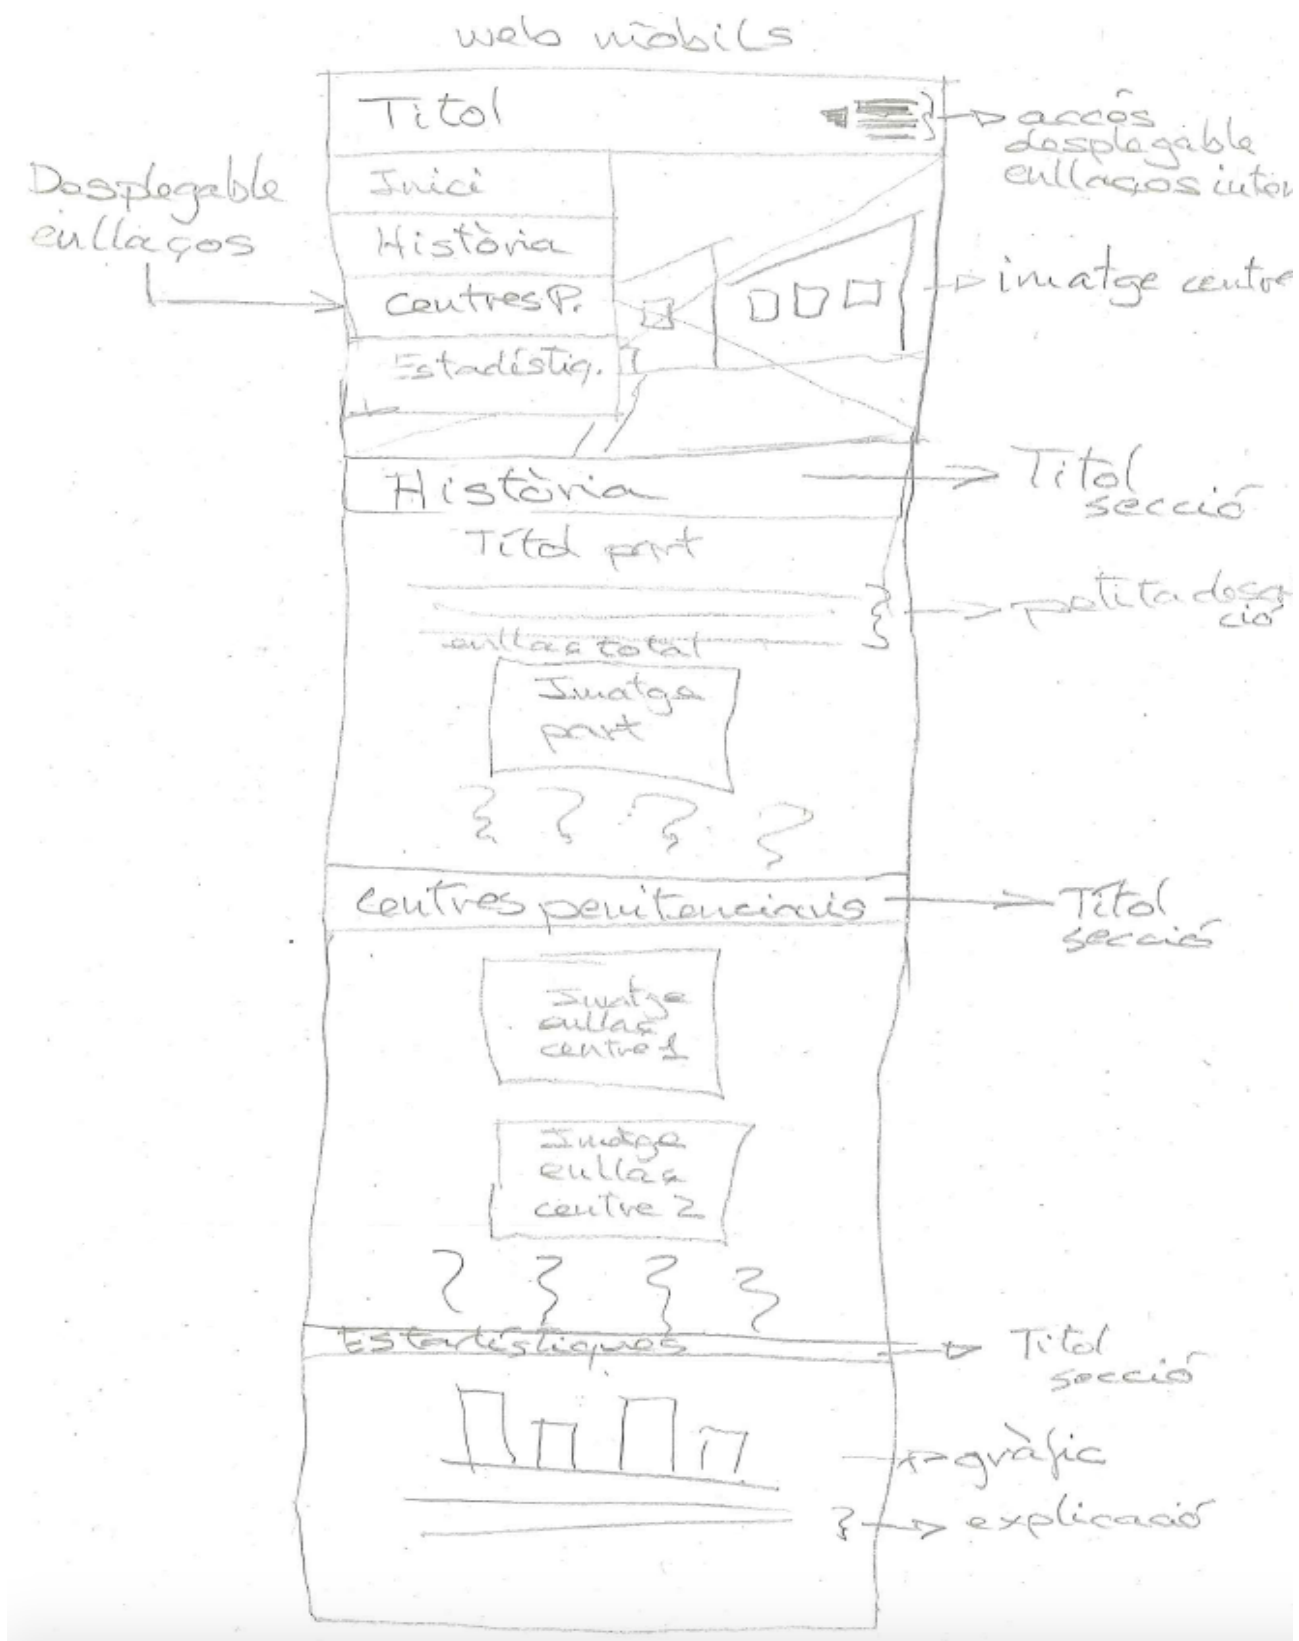 web mòbils
Titol
accés
desplegable
enllaços intern
Desplegable
enllaços
Inici
Història
centres P.
Estadístiq.
imatge centre
Història
Titol
secció
Títol part
petita desc
ció
enllaç total
Imatge
part
centres penitenciaris
Títol
secció
Imatge
enllaç
centre 1
Imatge
enllaç
centre 2
Estadístiques
Titol
secció
gràfic
explicació